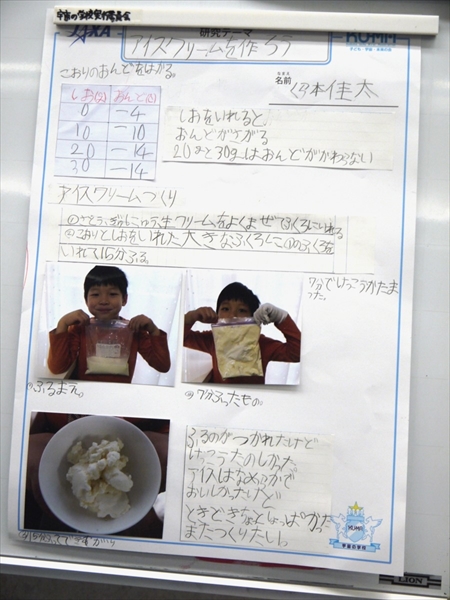 宇宙の学校実行委員会
研究テーマ
アイスクリームを作ろう
KU-MA
こおりのおんどをはかる。
名前
佳太
しお(g) おんど(℃)
0 -4
10 -10
20 -14
30 -14
しおをいれると
おんどがさがる
20gと30gはおんどがかわらない
アイスクリームつくり
①さとう、ぎゅうにゅう、生クリームをよくまぜてふくろにいれる
②こおりとしおをいれた大きなふくろに①のふくろを
いれて15分ふる。
7分でけっこうかたま
った。
ふるまえ。
7分ふったもの。
ふるのがつかれたけど
けっこうたのしかった。
アイスはなめらかで
おいしかったけど
ときどきちょっとしょっぱかった
またつくりたい。
KU-MA
宇宙の学校
LION